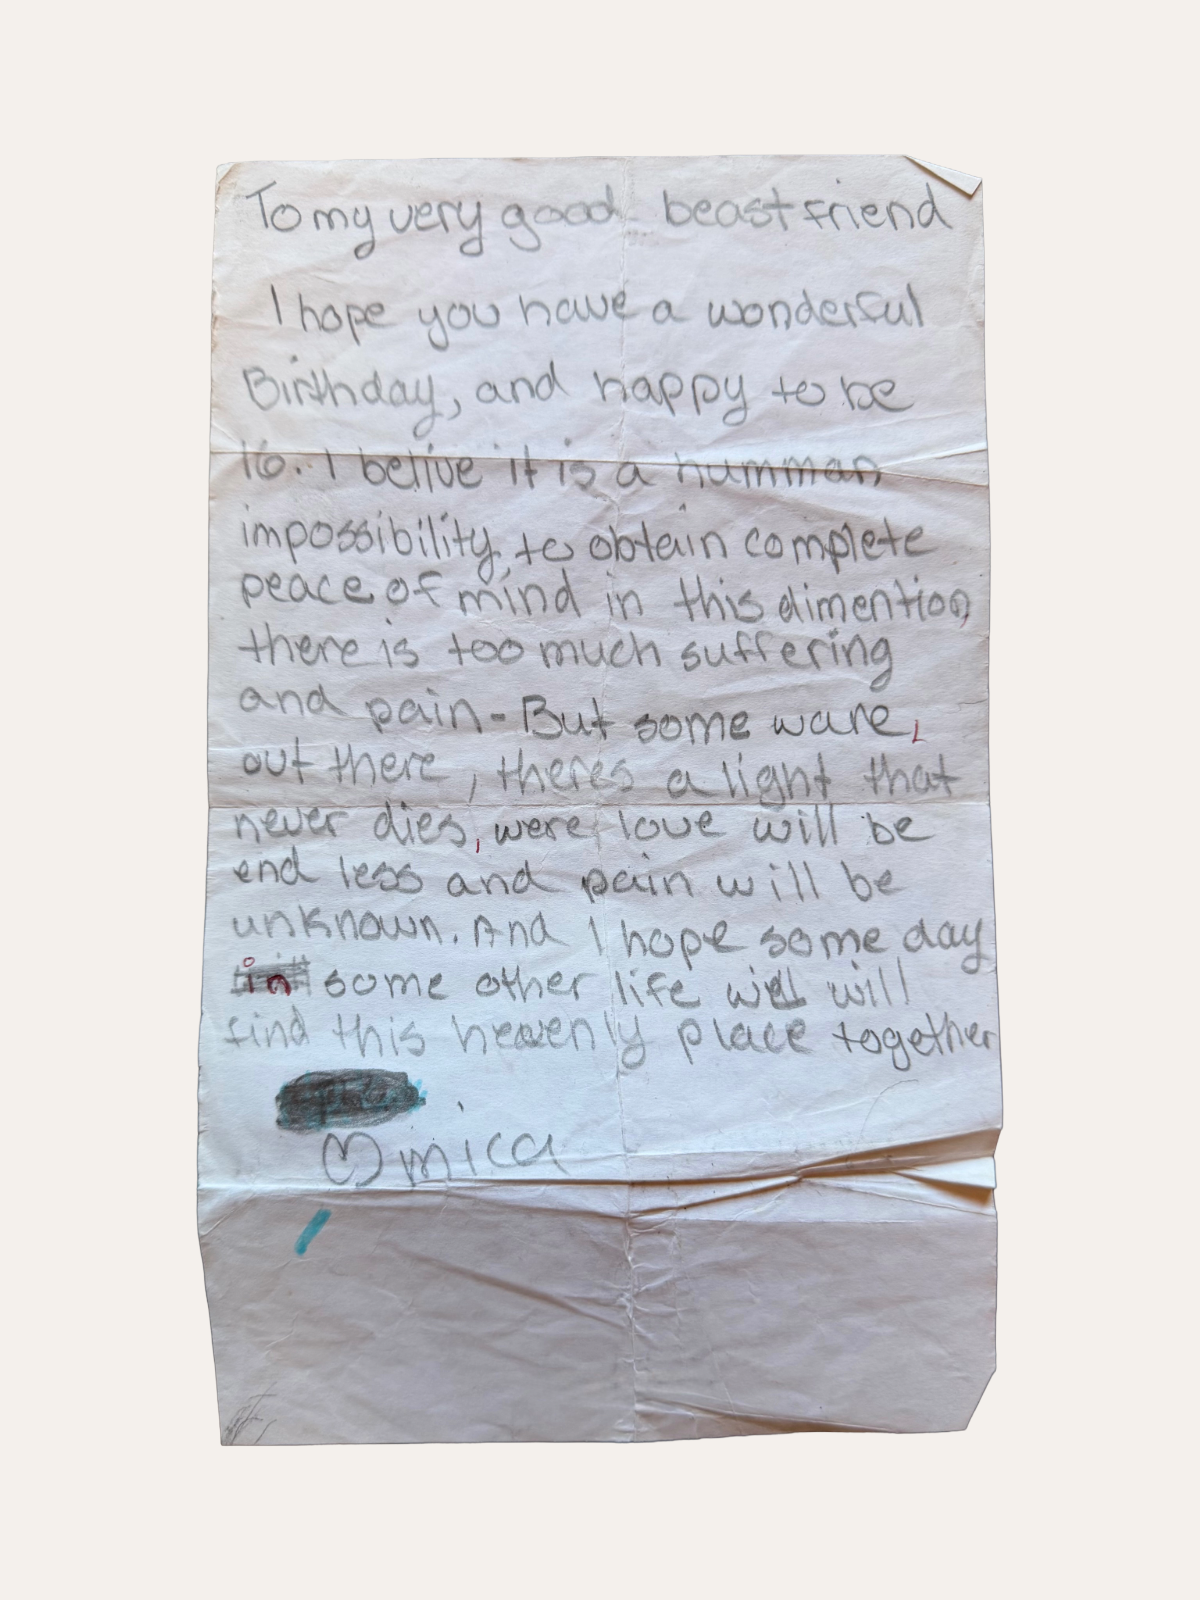 To my very good beast friend
I hope you have a wonderful
Birthday, and happy to be
16. I belive it is a humman
impossibility, to obtain complete
peace of mind in this dimention,
there is too much suffering
and pain - But some ware,
out there, theres a light that
never dies, were love will be
end less and pain will be
unknown. And I hope some day
in some other life will
find this heavenly place together
♡ mica